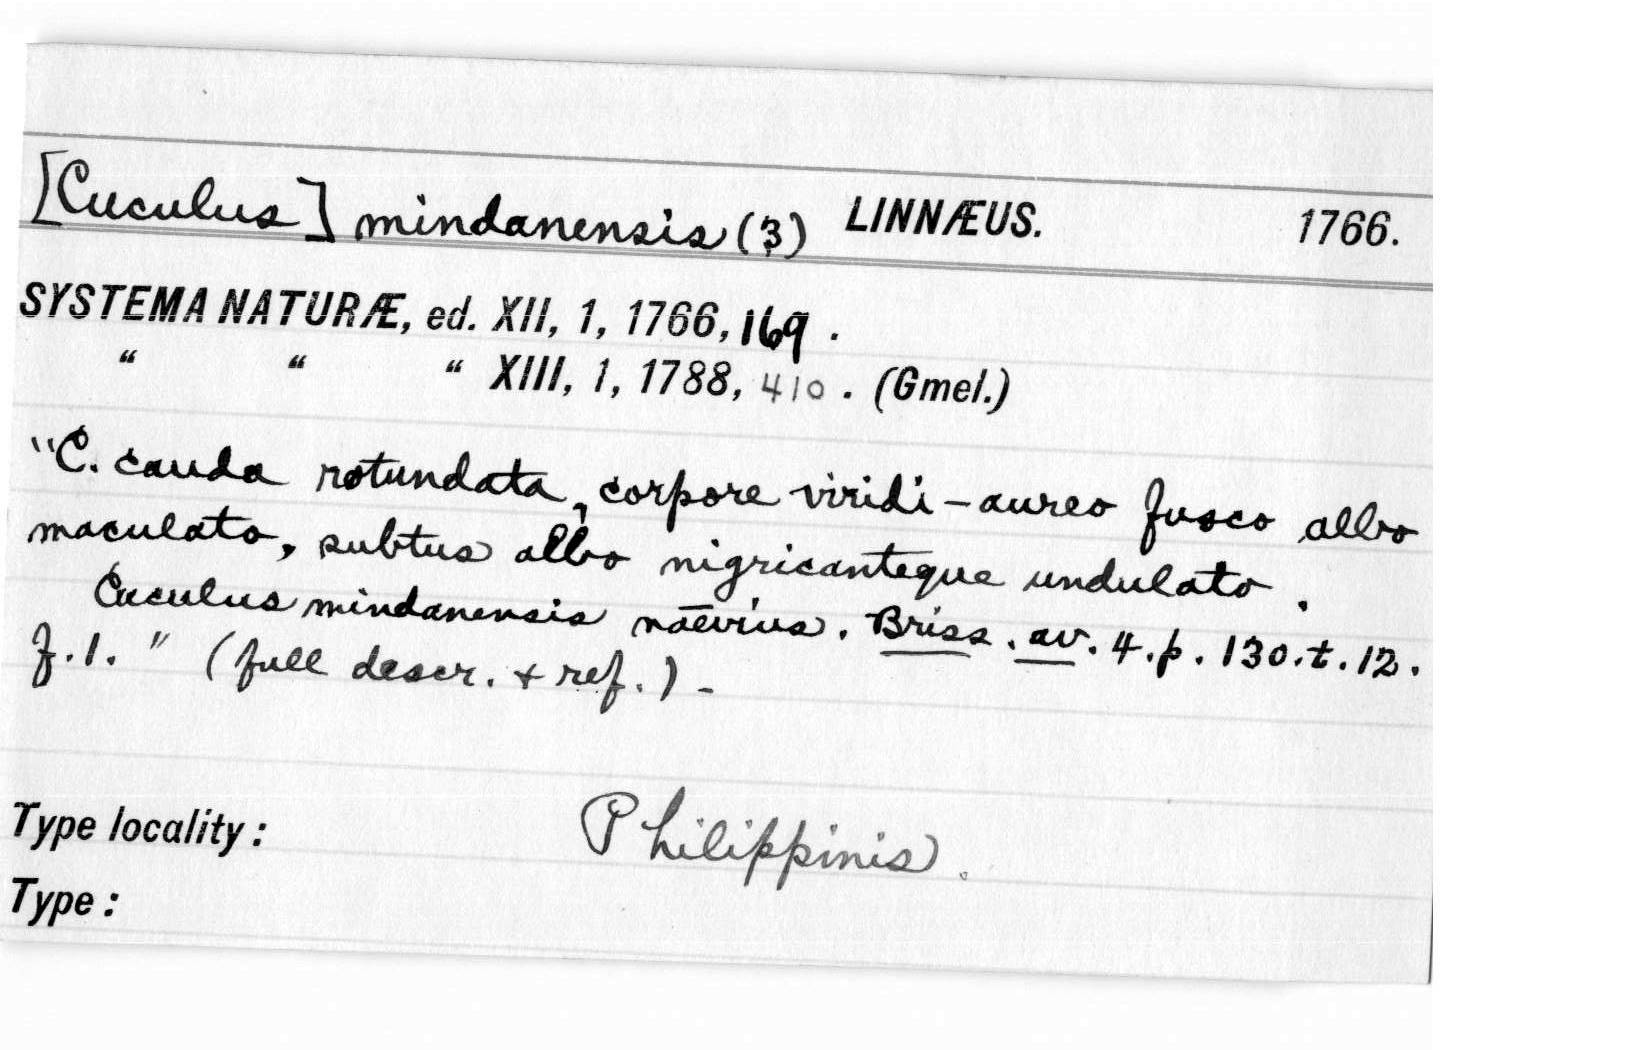 [Cuculus] mindanensis (3) LINNÆUS. 1766.
SYSTEMA NATURÆ, ed. XII, 1, 1766, 169.
“ “ “ XIII, 1, 1788, 410. (Gmel.)
"C. cauda rotundata, corpore viridi-aureo fusco albo
maculato, subtus albo nigricanteque undulato.
Cuculus mindanensis naevius. Briss. av. 4. p. 130. t. 12.
f. 1. " (full descr. + ref.) -
Type locality: Philippinis.
Type: